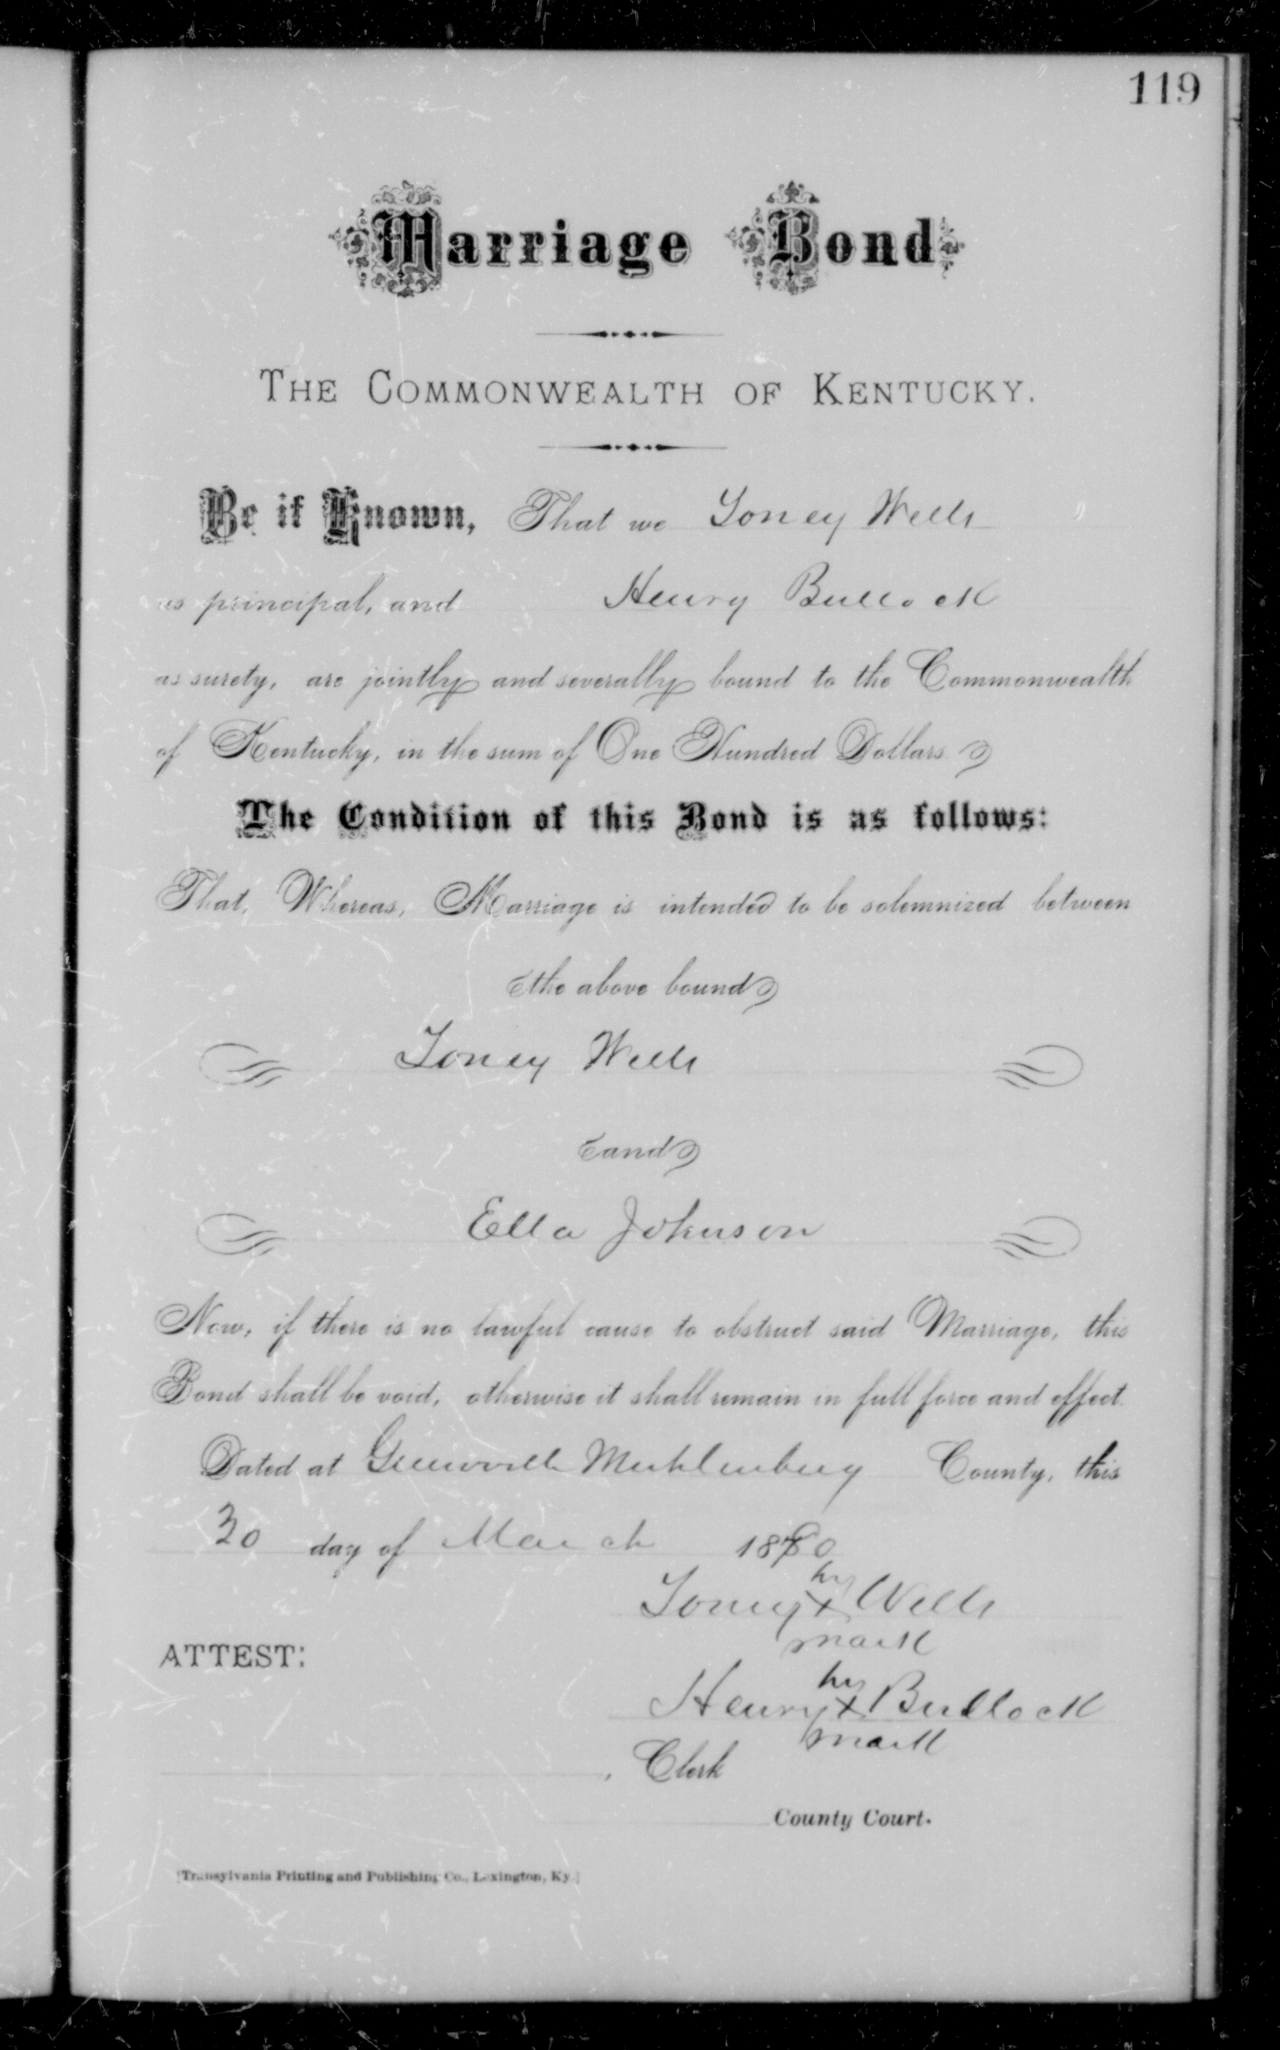 119
Marriage Bond
THE COMMONWEALTH OF KENTUCKY.
Be it Known, That we Toney Wells
as principal, and Henry Bullock
as surety, are jointly and severally bound to the Commonwealth
of Kentucky, in the sum of One Hundred Dollars.
The Condition of this Bond is as follows:
That, Whereas, Marriage is intended to be solemnized between
the above bound
Toney Wells
and
Ella Johnson
Now, if there is no lawful cause to obstruct said Marriage, this
Bond shall be void, otherwise it shall remain in full force and effect.
Dated at Greenville Muhlenburg County, this
30 day of March 1880
his
Toney x Wells
mark
ATTEST:
his
Henry x Bullock
mark
, Clerk
County Court.
[Transylvania Printing and Publishing Co., Lexington, Ky.]